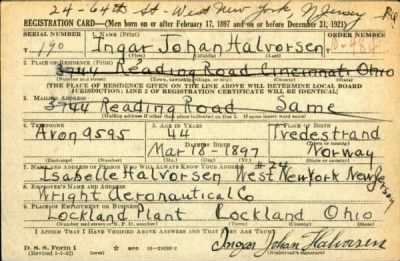 24 - 64th St - West New York N Jersey
REGISTRATION CARD—(Men born on or after February 17, 1897 and on or before December 31, 1921)
SERIAL NUMBER 1. NAME (Print) ORDER NUMBER
190 Ingar Johan Halvorsen
(First) (Middle) (Last)
2. PLACE OF RESIDENCE (Print)
3744 Reading Road Cincinnati Ohio
(Number and street) (Town, township, village, or city) (County) (State)
[THE PLACE OF RESIDENCE GIVEN ON THE LINE ABOVE WILL DETERMINE LOCAL BOARD
JURISDICTION; LINE 2 OF REGISTRATION CERTIFICATE WILL BE IDENTICAL]
3. MAILING ADDRESS
3744 Reading Road Same
(Mailing address if other than place indicated on line 2. If same insert word same)
4. TELEPHONE 5. AGE IN YEARS 6. PLACE OF BIRTH
Avon 9595 44 Tvedestrand
DATE OF BIRTH (Town or county)
Mar - 18 - 1897 Norway
(Exchange) (Number) (Mo.) (Day) (Yr.) (State or country)
7. NAME AND ADDRESS OF PERSON WHO WILL ALWAYS KNOW YOUR ADDRESS #24
Isabelle Halvorsen West New York New Jersey
8. EMPLOYER'S NAME AND ADDRESS
Wright Aeronautical Co
9. PLACE OF EMPLOYMENT OR BUSINESS
Lockland Plant Lockland Ohio
(Number and street or R. F. D. number) (Town) (County) (State)
I AFFIRM THAT I HAVE VERIFIED ABOVE ANSWERS AND THAT THEY ARE TRUE.
D. S. S. Form 1
(Revised 1-1-42) GPO Ingar Johan Halvorsen
(Registrant's signature)